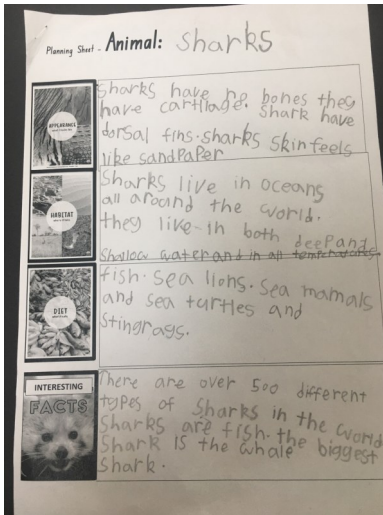 Planning Sheet - Animal: Sharks
APPEARANCE
sharks have no bones they
have cartilage. Shark have
dorsal fins. sharks skin feels
like sandpaper
HABITAT
Sharks live in oceans
all around the world.
they like in both deep and
Shallow water and in all temperatures
DIET
fish. sea lions. Sea mamals
and sea turtles and
Stingrags.
INTERESTING
FACTS
There are over 500 different
types of sharks in the world
Sharks are fish. the biggest
Shark is the whale
shark.